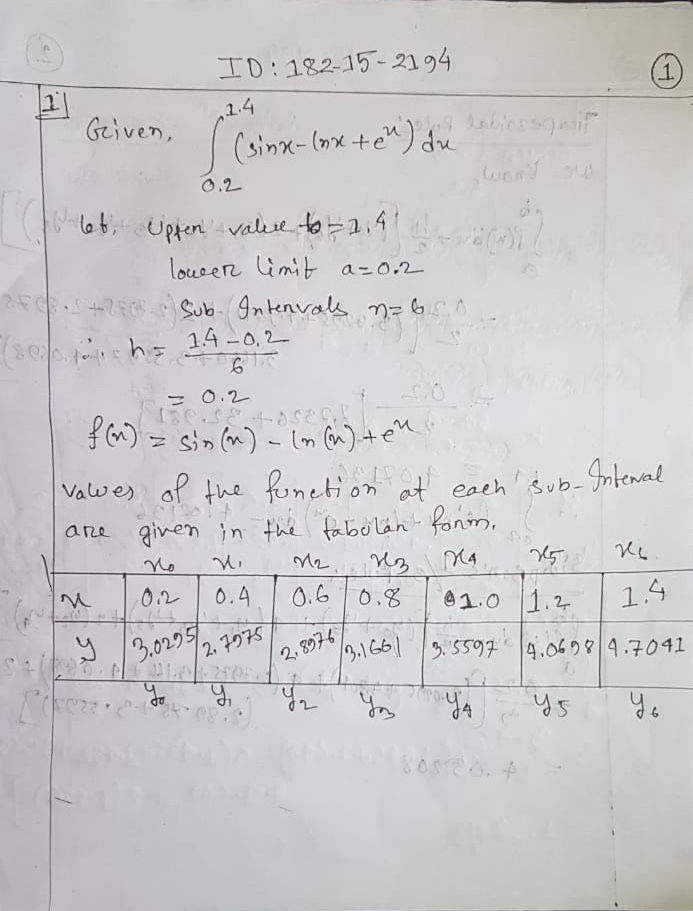 ID: 182-15-2194
1
1
Given, ∫ 0.2 1.4 (sinx-lnx+e^x) dx
let, Upper value b = 1.4
lower limit a=0.2
Sub-Intervals n=6
∴ h= 1.4-0.2 / 6
= 0.2
f(x) = sin(x) - ln(x) + e^x
values of the function at each sub-Interval
are given in the tabolar form,
x₀ x₁ x₂ x₃ x₄ x₅ x₆
x 0.2 0.4 0.6 0.8 1.0 1.2 1.4
y 3.0295 2.7975 2.8976 3.1661 3.5597 4.0698 4.7041
y₀ y₁ y₂ y₃ y₄ y₅ y₆